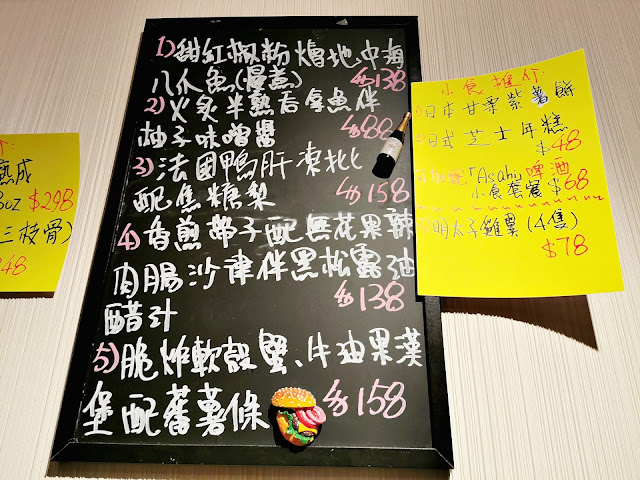 熟成
oz $298
三枝骨)
48
1) 甜紅椒粉燴地中海
八爪魚(慢煮) $138
2) 火炙半熟吞拿魚伴
柚子味噌醬 $88
3) 法國鴨肝凍批
配焦糖梨 $158
4) 香煎帶子配無花果辣
肉腸沙律伴黑松露油
醋汁 $138
5) 脆炸軟殼蟹、牛油果漢
堡配蕃薯條 $158
小食推介:
日本甘栗紫薯餅
日式芝士年糕
$48
配「Asahi 啤酒
小食套餐 $68
明太子雞翼 (4隻)
$78